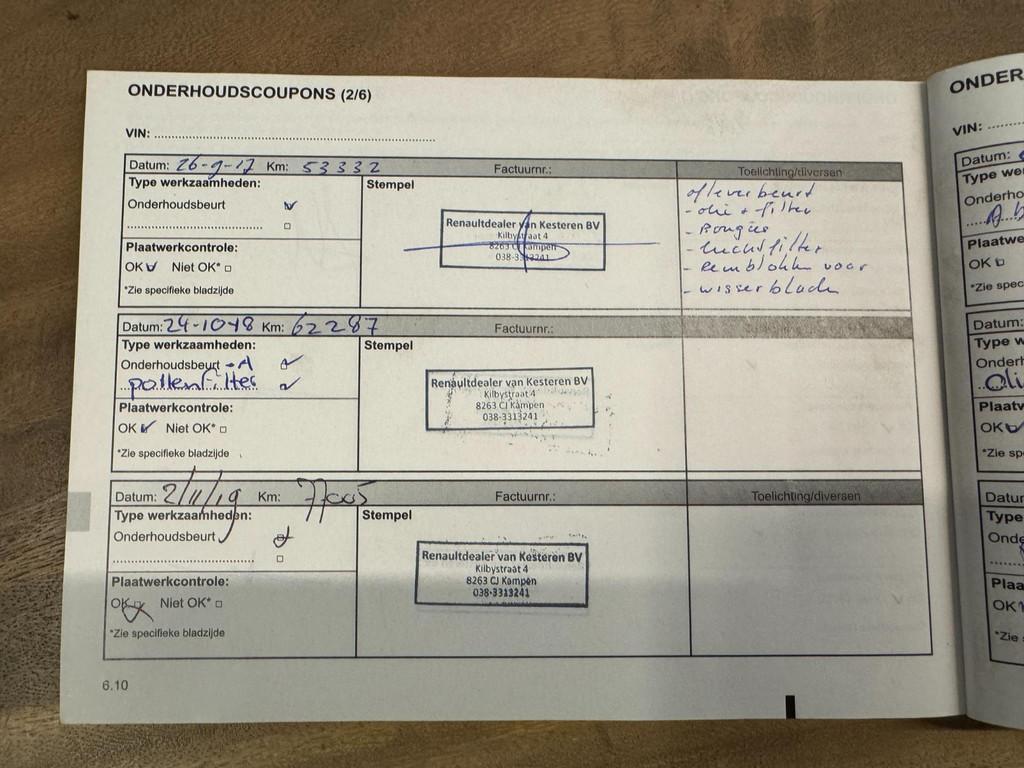 ONDERHOUDSCOUPONS (2/6)
VIN:
Datum: 26-9-17 Km: 53332 Factuurnr.: Toelichting/diversen
Type werkzaamheden: Stempel
Onderhoudsbeurt
Plaatwerkcontrole:
OK Niet OK*
*Zie specifieke bladzijde
Renaultdealer van Kesteren BV
Kilbystraat 4
8263 CJ Kampen
038-3313241
afleverbeurt
- olie + filter
- Bougies
- luchtfilter
- Remblokken voor
- wisserbladen
Datum: 24-10-18 Km: 62287 Factuurnr.:
Type werkzaamheden: Stempel
Onderhoudsbeurt - A
pollenfilter
Plaatwerkcontrole:
OK Niet OK*
*Zie specifieke bladzijde
Renaultdealer van Kesteren BV
Kilbystraat 4
8263 CJ Kampen
038-3313241
Datum: 2/11/19 Km: 77005 Factuurnr.: Toelichting/diversen
Type werkzaamheden: Stempel
Onderhoudsbeurt
Plaatwerkcontrole:
OK Niet OK*
*Zie specifieke bladzijde
Renaultdealer van Kesteren BV
Kilbystraat 4
8263 CJ Kampen
038-3313241
6.10
ONDER
VIN:
Datum:
Type we
Onderho
Plaatwe
OK
*Zie spec
Datum:
Type w
Onderh
Oli
Plaatw
OK
*Zie sp
Datur
Type
Onde
Plaa
OK
*Zie